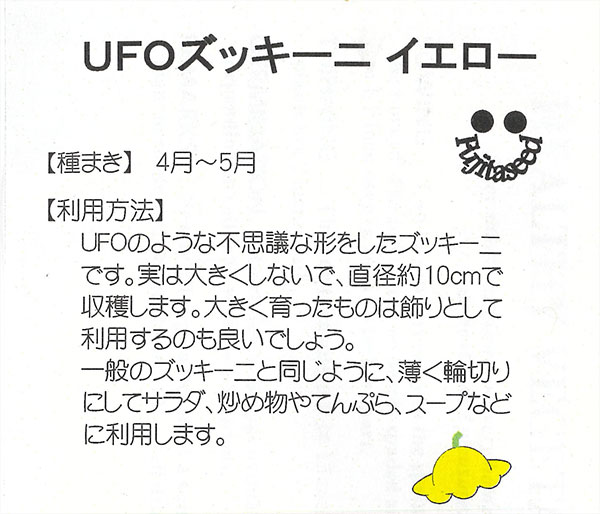 UFOズッキーニ イエロー
Fujitaseed
【種まき】 4月～5月
【利用方法】
UFOのような不思議な形をしたズッキーニ
です。実は大きくしないで、直径約10cmで
収穫します。大きく育ったものは飾りとして
利用するのも良いでしょう。
一般のズッキーニと同じように、薄く輪切り
にしてサラダ、炒め物やてんぷら、スープなど
に利用します。